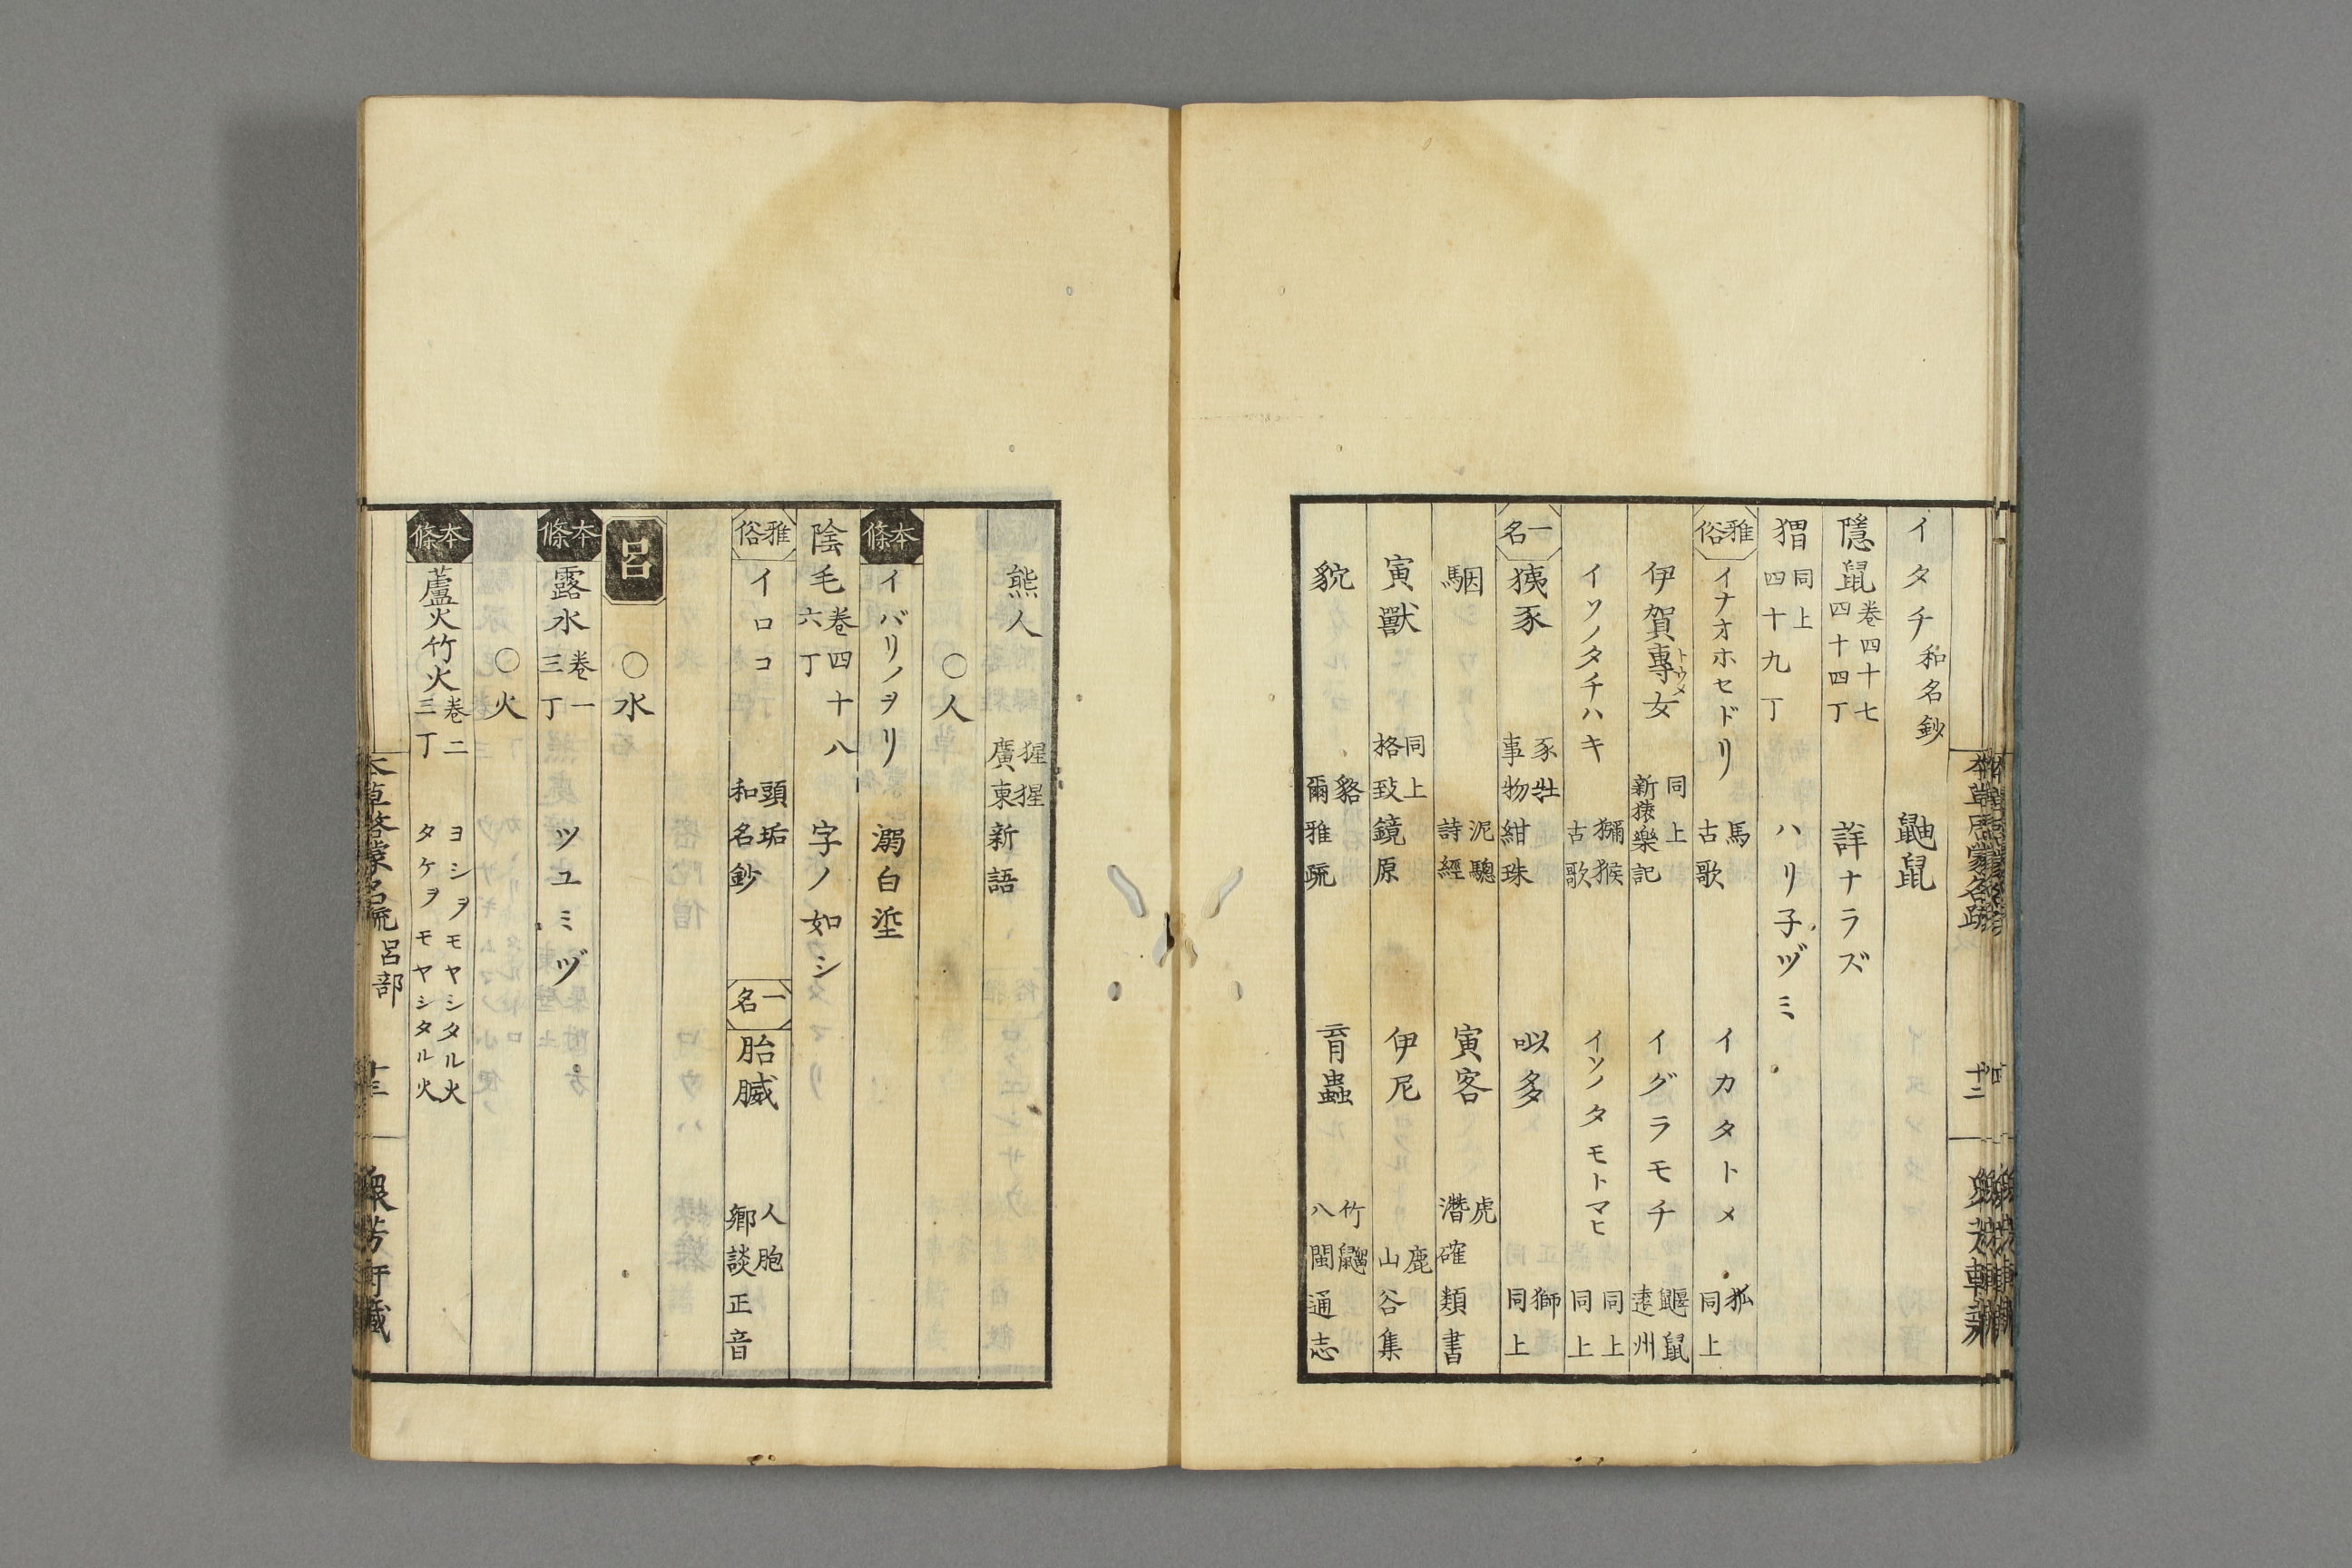 イタチ 和名鈔 鼬鼠
隱鼠 卷四十七 四十四丁 詳ナラズ
猬 同上 四十九丁 ハリ子ヅミ
雅俗 イナオホセドリ 馬 古歌 イカタトメ 狐 同上
伊賀專女 トウメ 同上 新猿樂記 イグラモチ 鼴鼠 遠州
イソノタチハキ 獼猴 古歌 イソノタモトマヒ 同上 同上
一名 㹫豕 豕牡 事物紺珠 呬多 獅 同上
駰 泥驄 詩經 寅客 虎 潛確類書
寅獸 同上 格致鏡原 伊尼 鹿 山谷集
貁 貉 爾雅疏 育蟲 竹鼺 八閩通志
熊人 猩猩 廣東新語
○人
本條 イバリノヲリ 溺白垽
陰毛 卷四十八 六丁 字ノ如シ
雅俗 イロコ 頭垢 和名鈔 一名 胎臟 人胞 鄉談正音
呂 ○水
本條 露水 卷一 三丁 ツユミヅ
○火
本條 蘆火竹火 卷二 三丁 ヨシヲモヤシタル火 タケヲモヤシタル火
本草啓蒙名疏 呂部 十三 衆芳軒藏